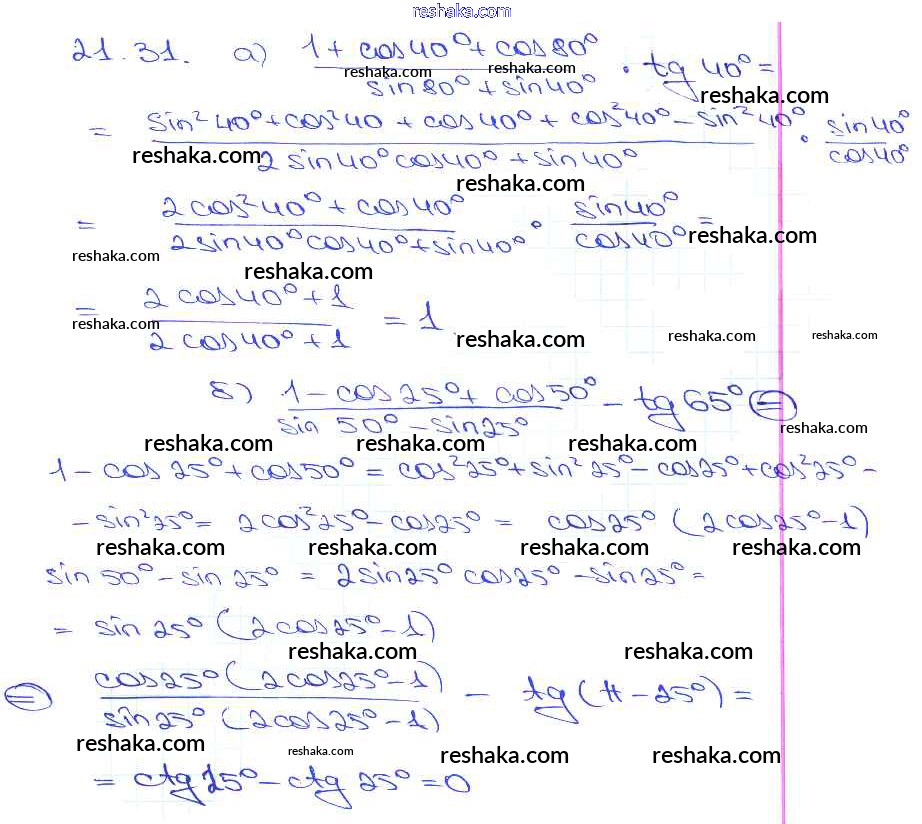 reshaka.com
21.31. а) (1 + cos40° + cos80°)/(sin80° + sin40°) · tg 40° =
reshaka.com reshaka.com reshaka.com
= (sin²40° + cos²40 + cos40° + cos²40° − sin²40°)/(2 sin40° cos40° + sin40°) · sin40°/cos40°
reshaka.com reshaka.com
= (2cos²40° + cos40°)/(2sin40° cos40° + sin40°) · sin40°/cos40° =
reshaka.com reshaka.com reshaka.com
= (2 cos40° + 1)/(2 cos40° + 1) = 1.
reshaka.com reshaka.com reshaka.com reshaka.com
б) (1 − cos25° + cos50°)/(sin 50° − sin25°) − tg 65° ⊜
reshaka.com reshaka.com reshaka.com reshaka.com
1 − cos25° + cos50° = cos²25° + sin²25° − cos25° + cos²25° −
− sin²25° = 2cos²25° − cos25° = cos25° (2cos25° − 1)
reshaka.com reshaka.com reshaka.com reshaka.com
sin 50° − sin 25° = 2sin25° cos25° − sin25° =
= sin 25° (2cos25° − 1)
reshaka.com reshaka.com
⊜ cos25° (2cos25° − 1)/sin25° (2cos25° − 1) − tg (π − 25°) =
reshaka.com reshaka.com reshaka.com reshaka.com
= ctg 25° − ctg 25° = 0